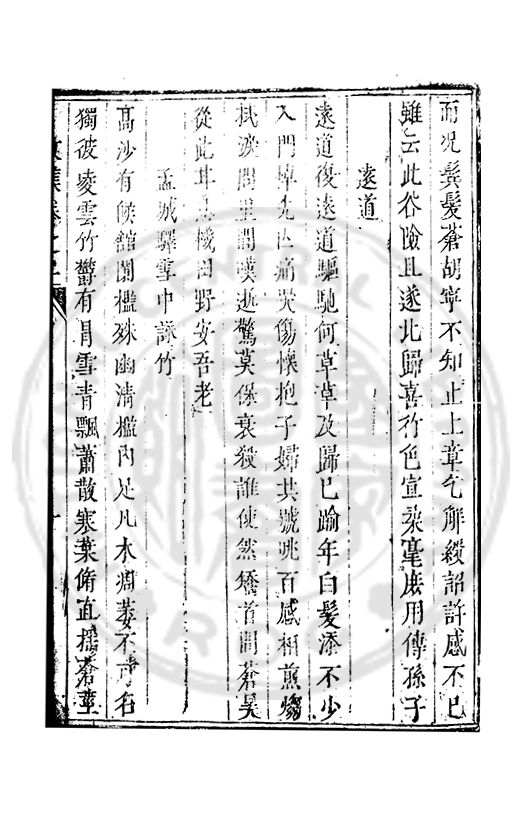 而况鬂髮蒼胡寧不知止上章乞解綬詔許感不已
雖云此谷險且遂北歸喜行色宣毫庶用傳孫子
遠道
遠道復遠道驅馳何草草及歸已踰年白髮添不少
入門悼先痛哭傷懷抱子婦共號咷百感相煎
淚問里閭嘆逝驚莫保衰殺誰使然矯首問蒼昊
從此耳機田野安吾老
孟城驛雪中詠竹
髙沙有候館闌檻殊幽清檻内足凡木凋萎不可名
獨彼凌雲竹欝有雪青飄蕭散寒葉脩直揺蒼莖